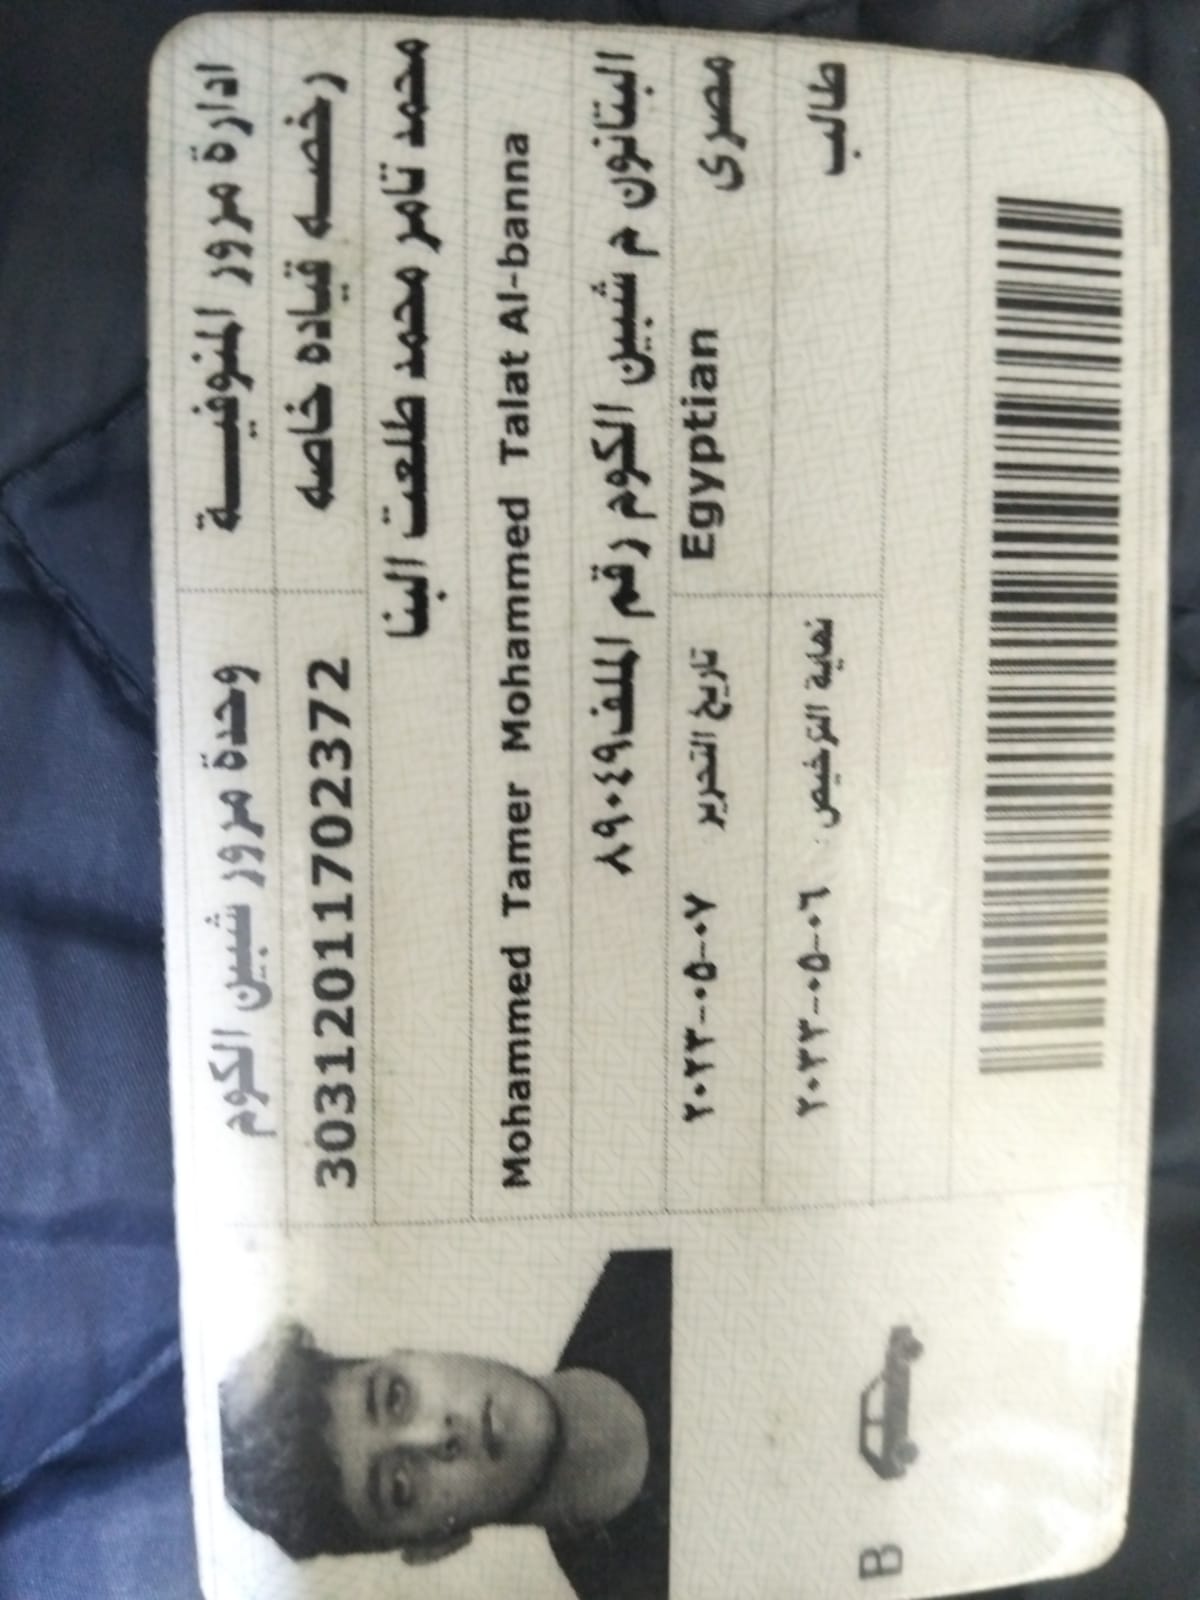 ادارة مرور المنوفيـــة وحدة مرور شبين الكوم
رخصـه قياده خاصه 30312011702372
محمد تامر محمد طلعت البنا
Mohammed Tamer Mohammed Talat Al-banna
البتانون م شبين الكوم رقم الملف٨٩٠٤٩
مصرى Egyptian تاريخ التحرير ٢٠٢٣-٠٥-٠٧
طالب نهاية الترخيص : ٢٠٣٣-٠٥-٠٦
B